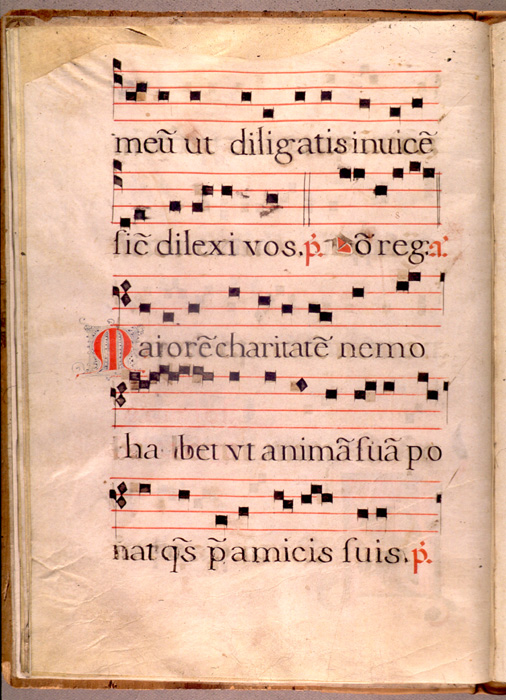 meū ut diligatis inuicē
ſic̄ dilexi vos. p̄. ō reg: a:
Maiorē charitatē nemo
ha bet vt animā ſuā po
nat q̄s p̄ amicis suis. p̄.